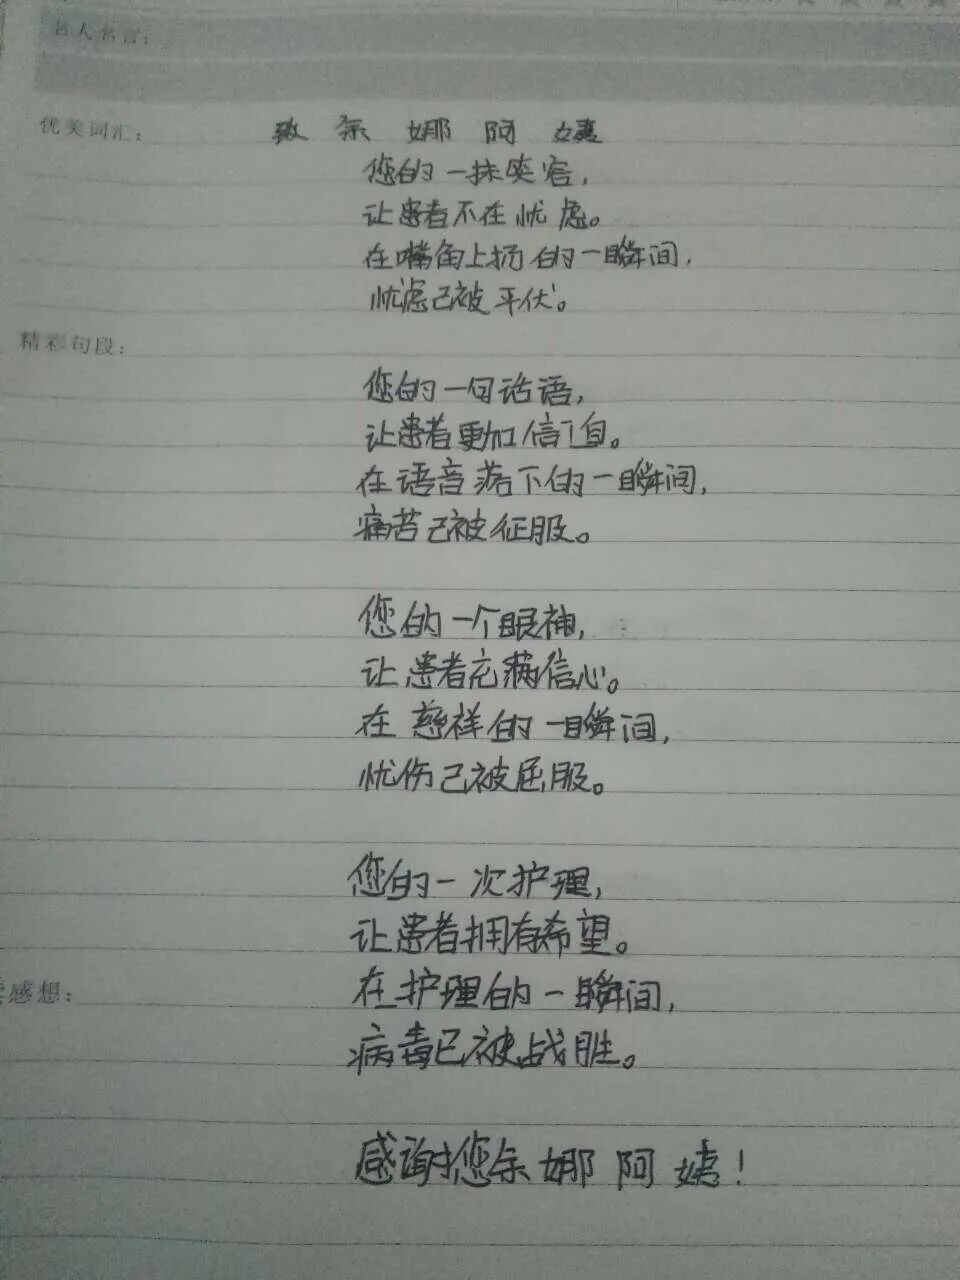 名人名言：
优美词汇：
致 余 娜 阿 姨
您的一抹笑容，
让患者不在忧虑。
在嘴角上扬的一瞬间，
忧虑已被平伏。
精彩句段：
您的一句话语，
让患者更加自信。
在语音落下的一瞬间，
痛苦已被征服。
您的一个眼神，
让患者充满信心。
在慈祥的一瞬间，
忧伤已被屈服。
您的一次护理，
让患者拥有希望。
感想：
在护理的一瞬间，
病毒已被战胜。
感谢您余娜阿姨！